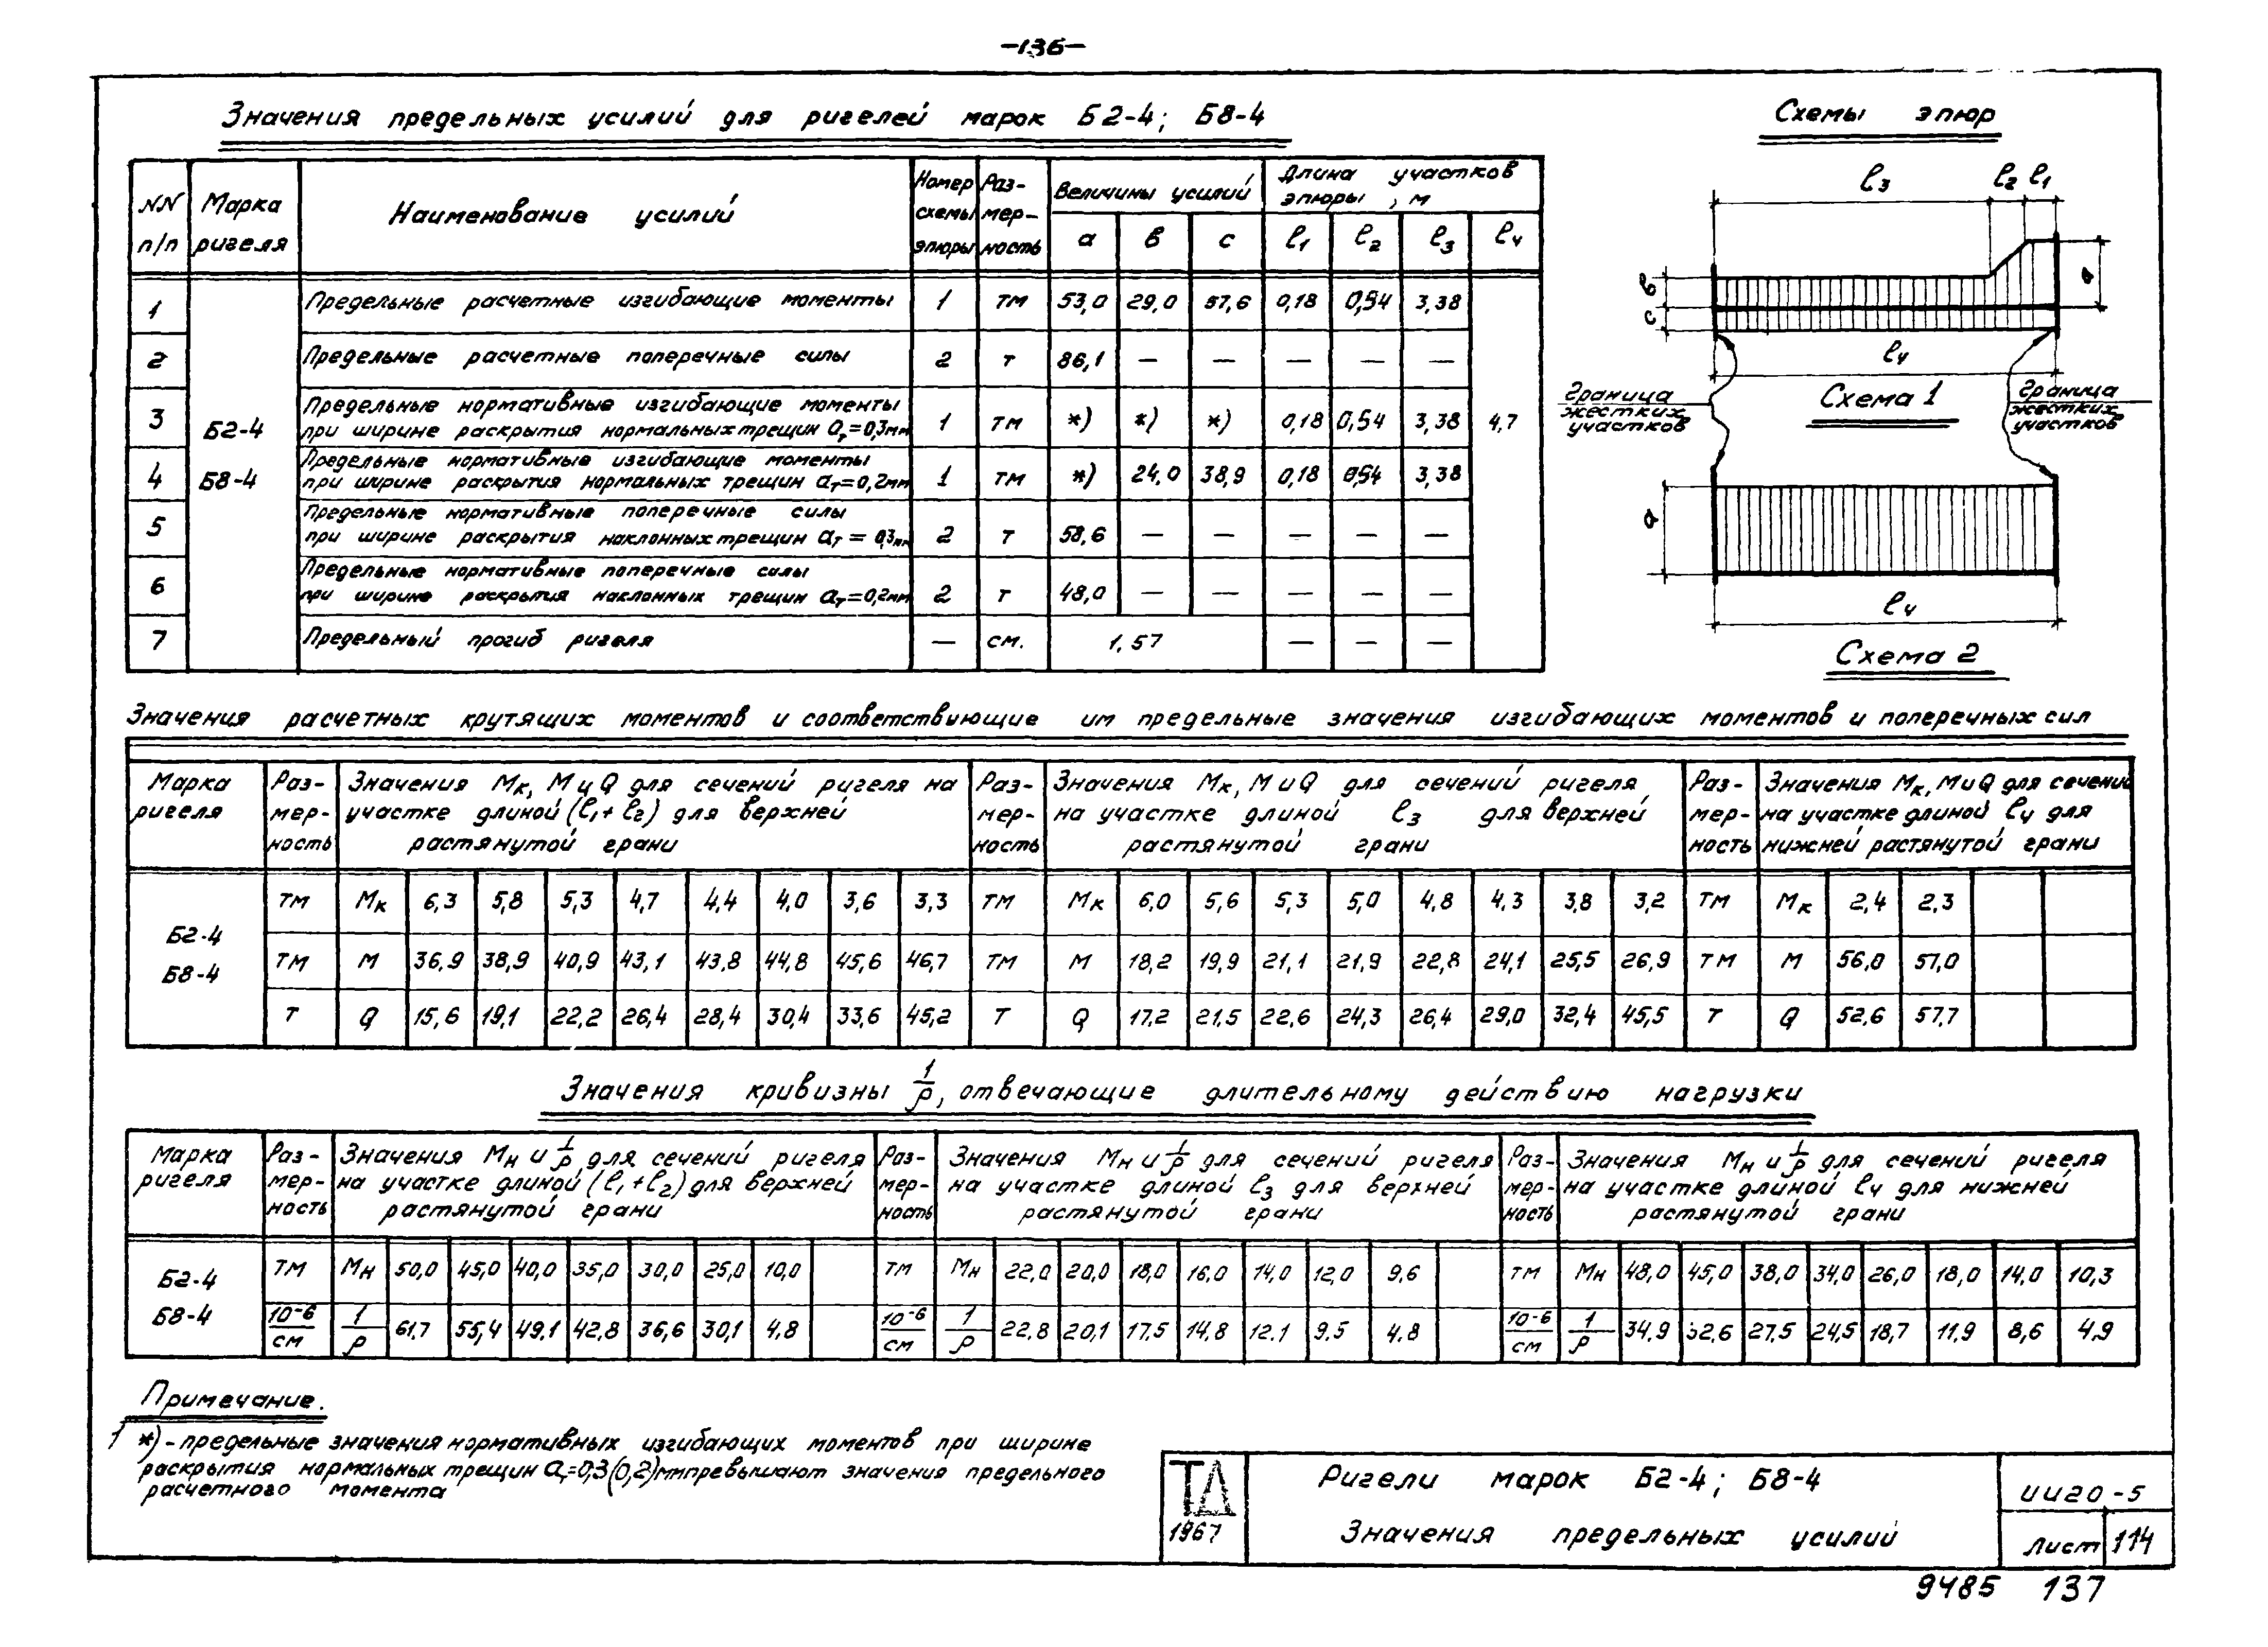 -136-
Значения предельных усилий для ригелей марок Б2-4; Б8-4
Схемы эпюр
NN п/п | Марка ригеля | Наименование усилий | Номер схемы эпюры | Раз-мер-ность | Величины усилий | Длина участков эпюры, м
a | в | с | ℓ1 | ℓ2 | ℓ3 | ℓ4
Б2-4
Б8-4
1 | Предельные расчетные изгибающие моменты | 1 | тм | 53,0 | 29,0 | 57,6 | 0,18 | 0,54 | 3,38
2 | Предельные расчетные поперечные силы | 2 | т | 86,1 | — | — | — | — | —
3 | Предельные нормативные изгибающие моменты
при ширине раскрытия нормальных трещин aт=0,3мм | 1 | тм | *) | *) | *) | 0,18 | 0,54 | 3,38 | 4,7
4 | Предельные нормативные изгибающие моменты
при ширине раскрытия нормальных трещин aт=0,2мм | 1 | тм | *) | 24,0 | 38,9 | 0,18 | 0,54 | 3,38
5 | Предельные нормативные поперечные силы
при ширине раскрытия наклонных трещин aт = 0,3мм | 2 | т | 58,6 | — | — | — | — | —
6 | Предельные нормативные поперечные силы
при ширине раскрытия наклонных трещин aт=0,2мм | 2 | т | 48,0 | — | — | — | — | —
7 | Предельный прогиб ригеля | — | см. | 1,57 | — | — | —
ℓ3 ℓ2 ℓ1
в
с
a
ℓ4
граница жестких участков
Схема 1
граница жестких участков
a
ℓ4
Схема 2
Значения расчетных крутящих моментов и соответствующие им предельные значения изгибающих моментов и поперечных сил
Марка ригеля | Раз-мер-ность | Значения Мк, М и Q для сечений ригеля на участке длиной (ℓ1+ℓ2) для верхней растянутой грани | Раз-мер-ность | Значения Мк, М и Q для сечений ригеля на участке длиной ℓ3 для верхней растянутой грани | Раз-мер-ность | Значения Мк, М и Q для сечений на участке длиной ℓ4 для нижней растянутой грани
Б2-4
Б8-4
тм | Мк | 6,3 | 5,8 | 5,3 | 4,7 | 4,4 | 4,0 | 3,6 | 3,3 | тм | Мк | 6,0 | 5,6 | 5,3 | 5,0 | 4,8 | 4,3 | 3,8 | 3,2 | тм | Мк | 2,4 | 2,3
тм | М | 36,9 | 38,9 | 40,9 | 43,1 | 43,8 | 44,8 | 45,6 | 46,7 | тм | М | 18,2 | 19,9 | 21,1 | 21,9 | 22,8 | 24,1 | 25,5 | 26,9 | тм | М | 56,0 | 57,0
т | Q | 15,6 | 19,1 | 22,2 | 26,4 | 28,4 | 30,4 | 33,6 | 45,2 | т | Q | 17,2 | 21,5 | 22,6 | 24,3 | 26,4 | 29,0 | 32,4 | 45,5 | т | Q | 52,6 | 57,7
Значения кривизны 1/ρ, отвечающие длительному действию нагрузки
Марка ригеля | Раз-мер-ность | Значения Мн и 1/ρ для сечений ригеля на участке длиной (ℓ1+ℓ2) для верхней растянутой грани | Раз-мер-ность | Значения Мн и 1/ρ для сечений ригеля на участке длиной ℓ3 для верхней растянутой грани | Раз-мер-ность | Значения Мн и 1/ρ для сечений ригеля на участке длиной ℓ4 для нижней растянутой грани
Б2-4
Б8-4
тм | Мн | 50,0 | 45,0 | 40,0 | 35,0 | 30,0 | 25,0 | 10,0 | тм | Мн | 22,0 | 20,0 | 18,0 | 16,0 | 14,0 | 12,0 | 9,6 | тм | Мн | 48,0 | 45,0 | 38,0 | 34,0 | 26,0 | 18,0 | 14,0 | 10,3
10⁻⁶/см | 1/ρ | 61,7 | 55,4 | 49,1 | 42,8 | 36,6 | 30,1 | 4,8 | 10⁻⁶/см | 1/ρ | 22,8 | 20,1 | 17,5 | 14,8 | 12,1 | 9,5 | 4,8 | 10⁻⁶/см | 1/ρ | 34,9 | 32,6 | 27,5 | 24,5 | 18,7 | 11,9 | 8,6 | 4,9
Примечание.
1 *) - предельные значения нормативных изгибающих моментов при ширине
раскрытия нормальных трещин aт=0,3 (0,2)мм превышают значения предельного
расчетного момента
ТД
1967
Ригели марок Б2-4; Б8-4
Значения предельных усилий
ИИ20-5
Лист 114
9485 137